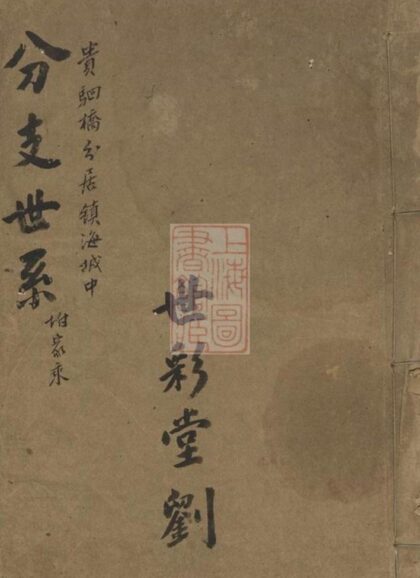 世彩堂劉
上海圖
書館藏
貴駟橋分居鎮海城中
分支世系
坿家乘